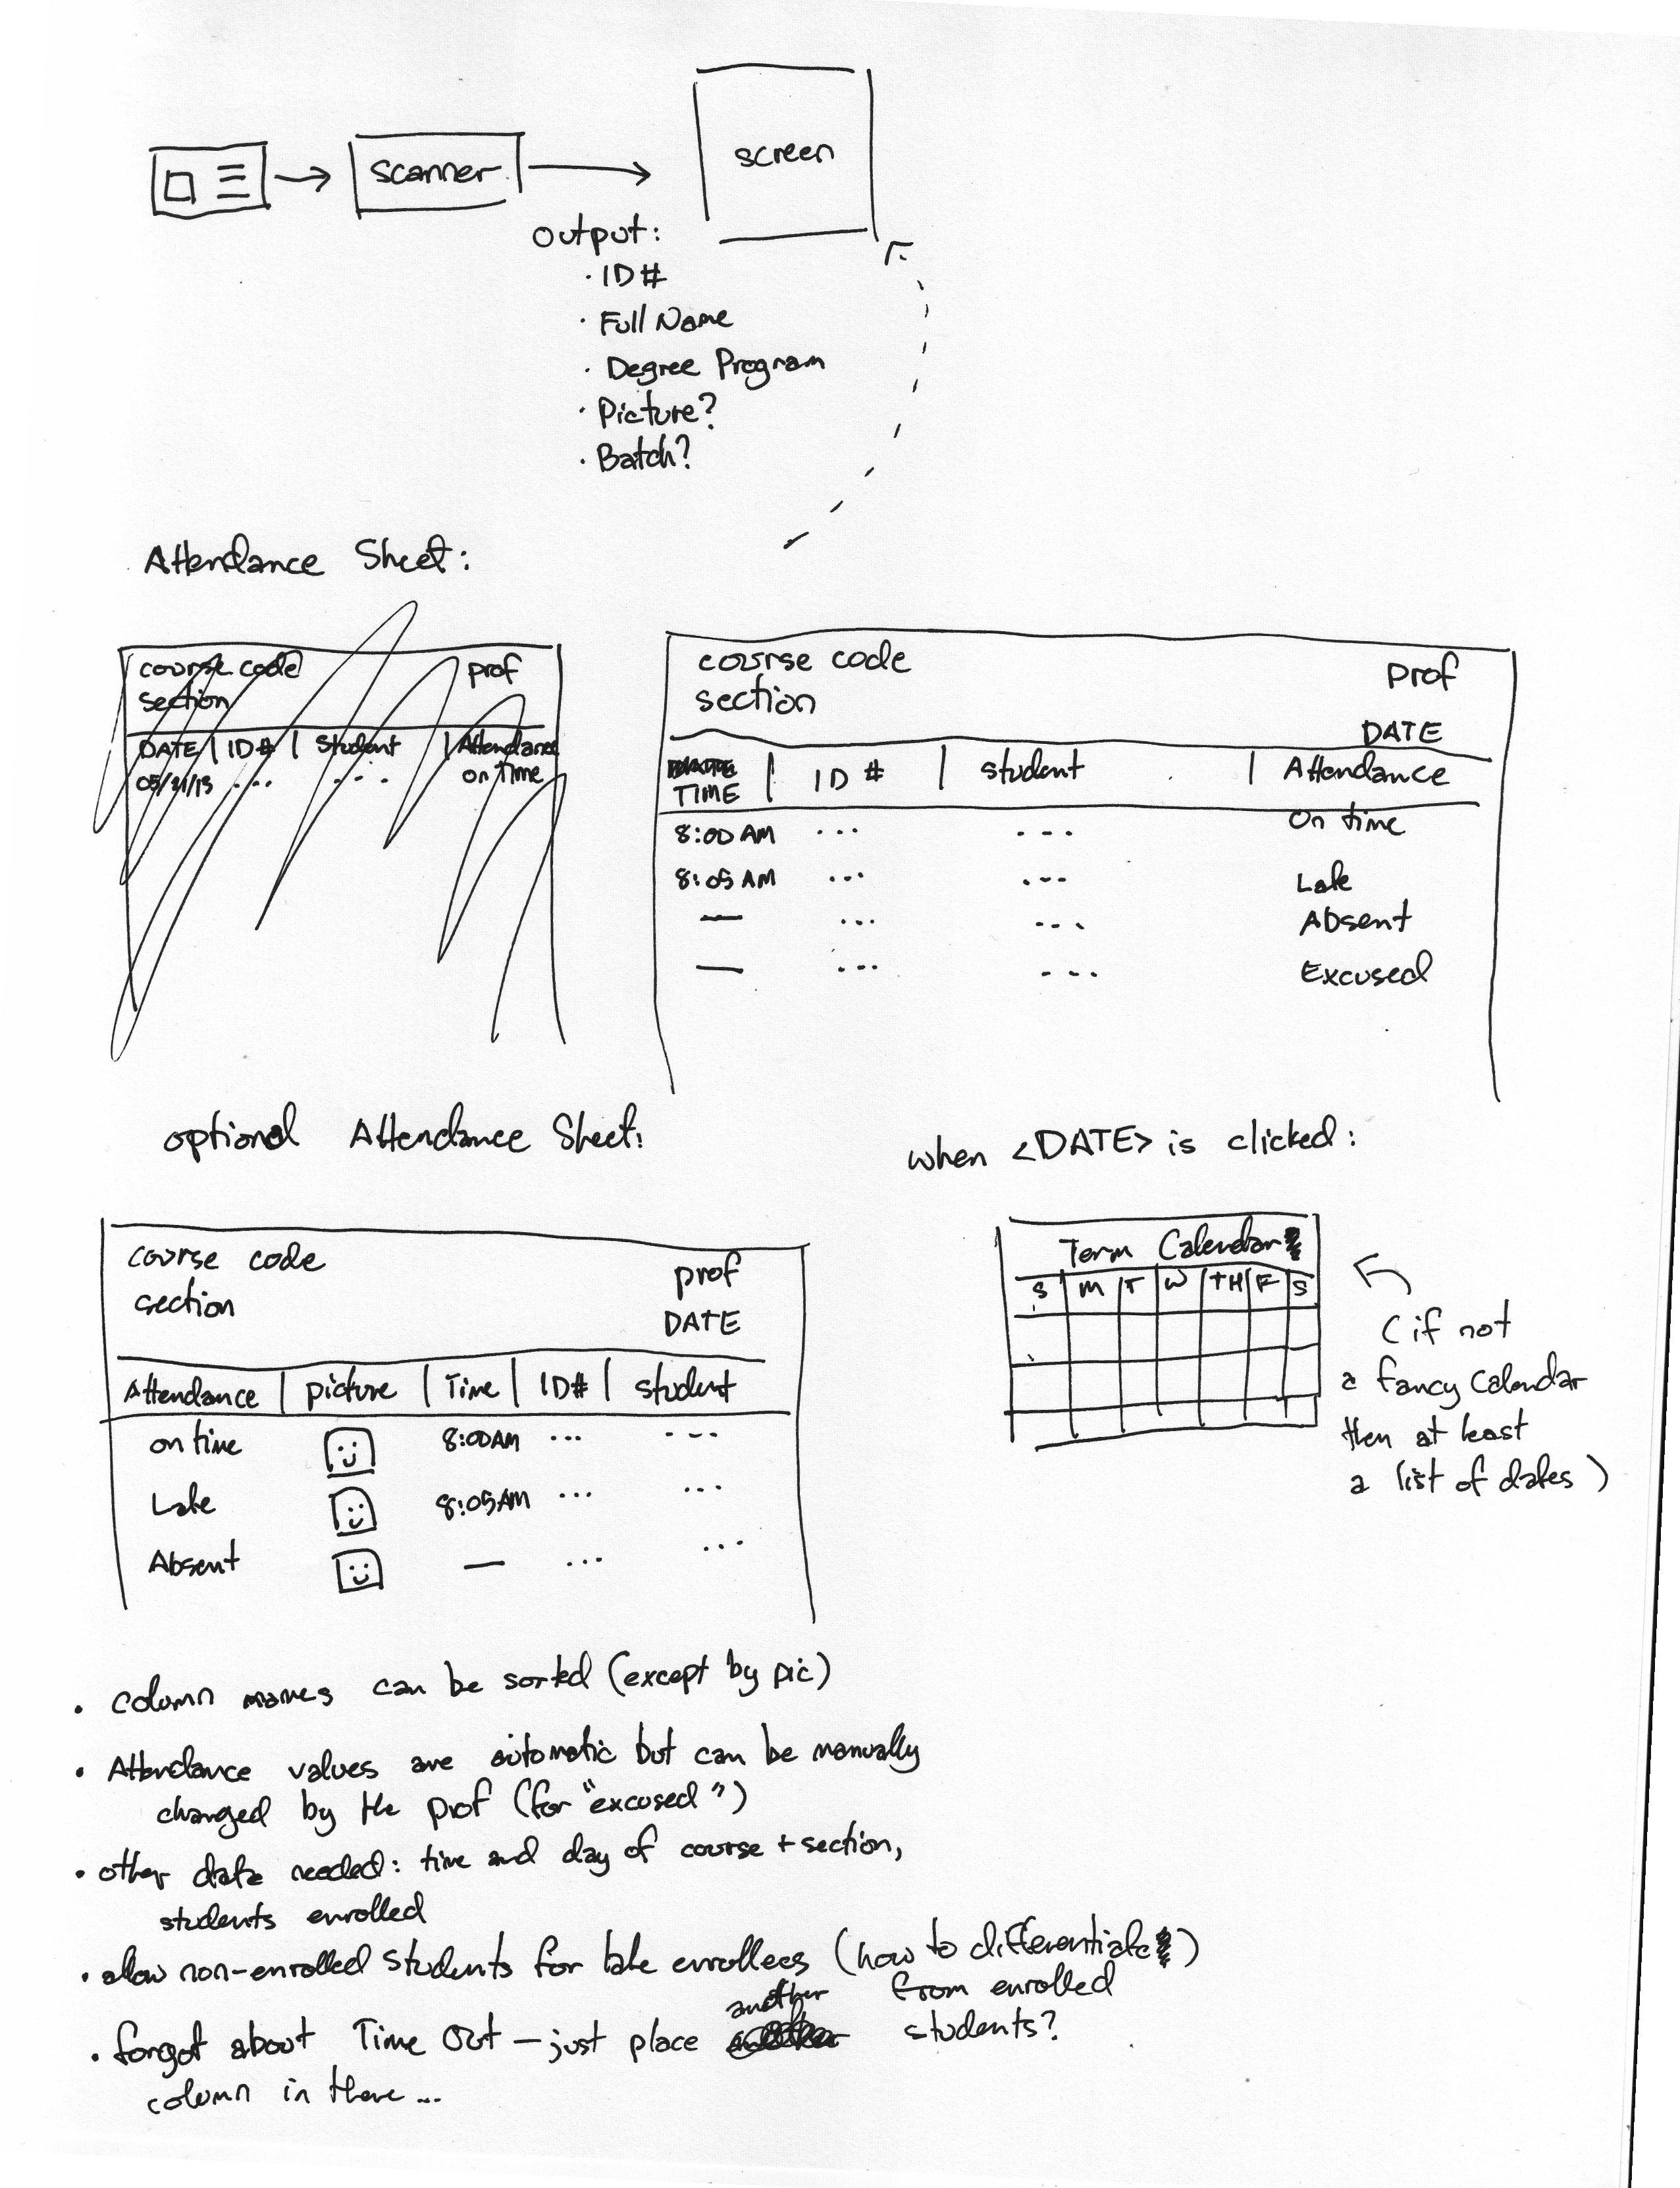 scanner
screen
output:
· ID#
· Full Name
· Degree Program
· Picture?
· Batch?
Attendance Sheet:
course code prof
section
DATE | ID# | Student | Attendance
05/21/13 ... ... on Time
course code
section
Prof
DATE
TIME | ID # | student | Attendance
8:00 AM ... --- On time
8:05 AM ... --- Late
— ... --- Absent
— ... --- Excused
optional Attendance Sheet:
course code
section
prof
DATE
Attendance | picture | Time | ID# | student
on time 8:00AM ... ---
Late 8:05AM ... ...
Absent — ... ...
when <DATE> is clicked:
Term Calendar
S M T W TH F S
(if not
a fancy calendar
then at least
a list of dates)
• column names can be sorted (except by pic)
• Attendance values are automatic but can be manually
changed by the prof (for "excused")
• other data needed: time and day of course + section,
students enrolled
• allow non-enrolled students for late enrollees (how to differentiate)
from enrolled
students?
• forgot about Time Out – just place another
column in there...